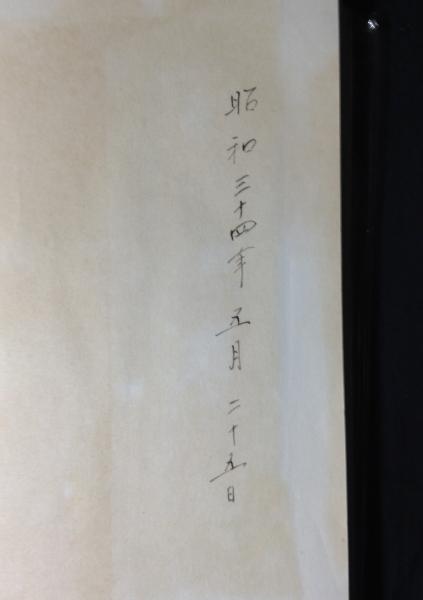 昭和三十四年五月二十五日